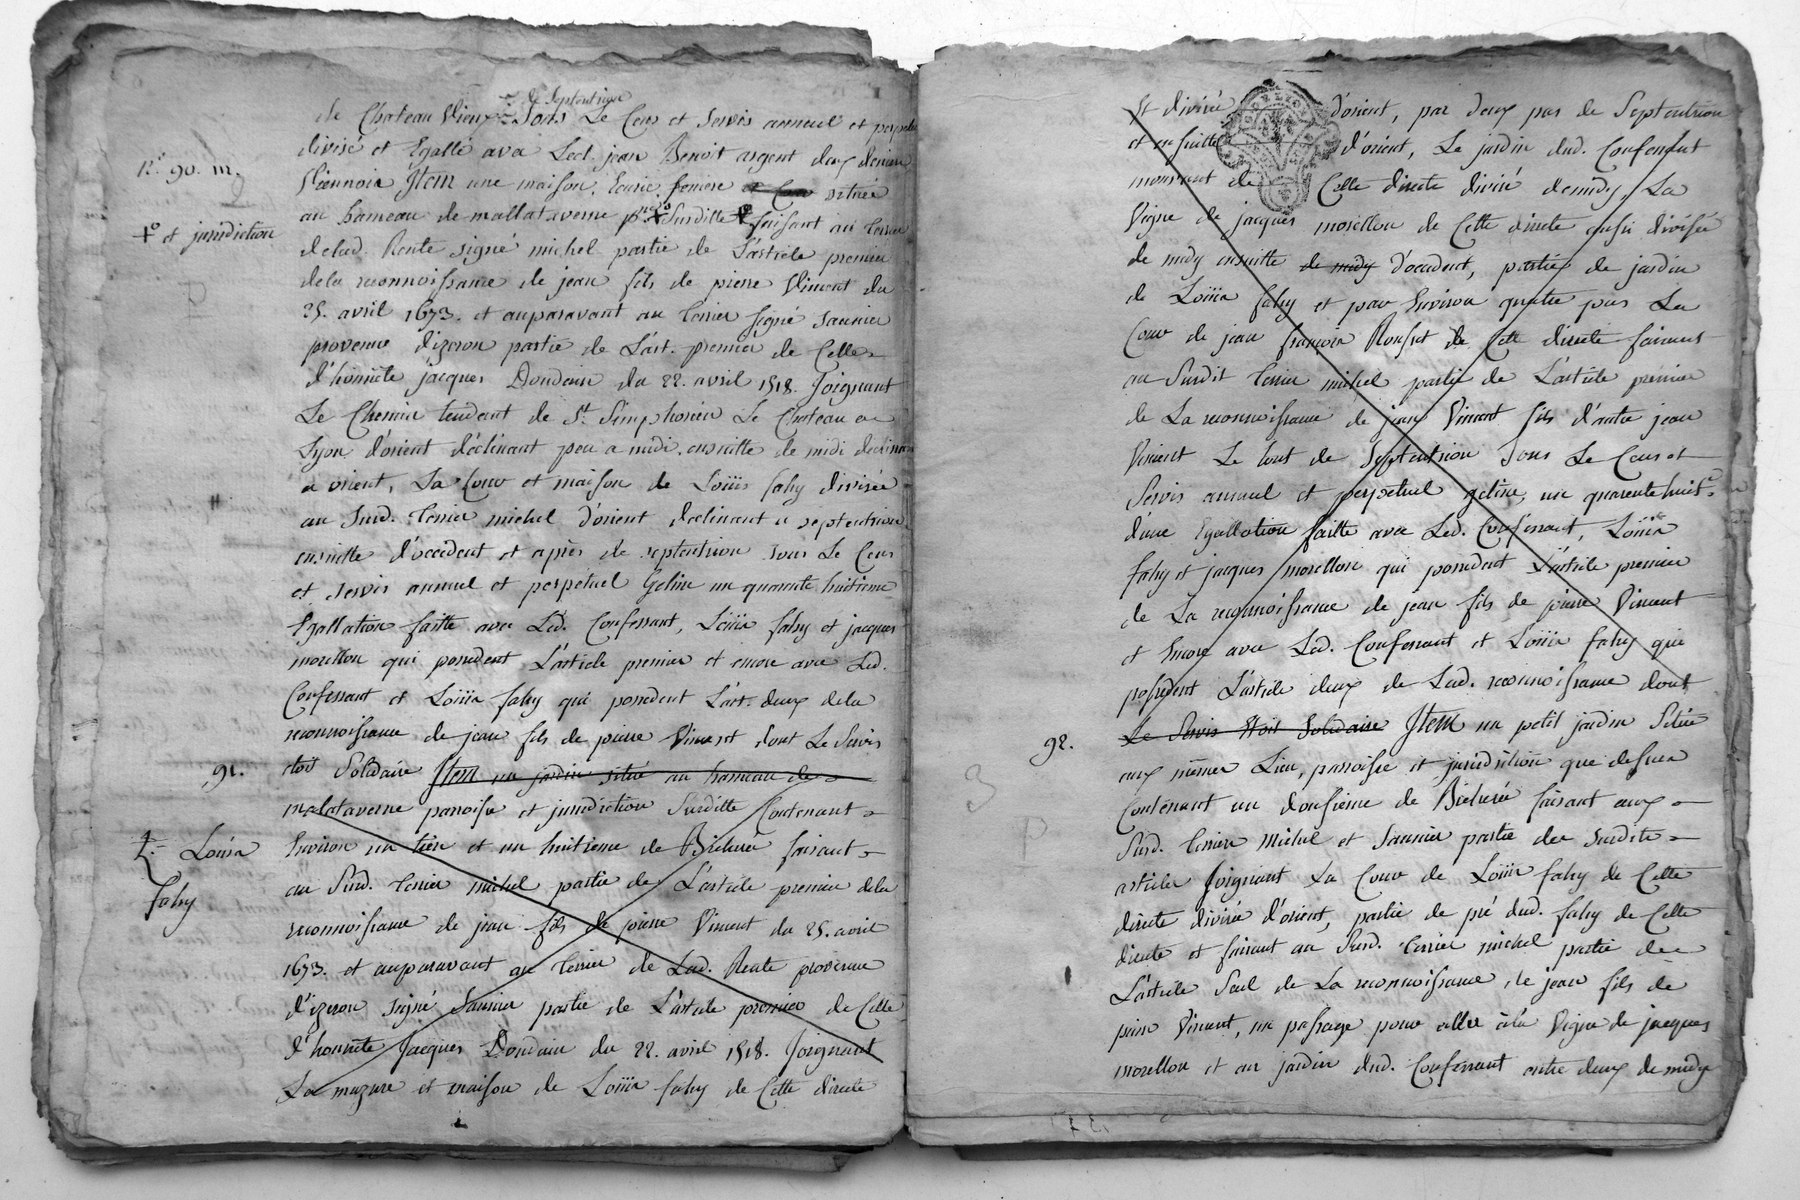 de Septentrion
de Chateau Vieux Sous Le Cens et servis annuel et perpetuel
divisé et Egallé avec Led. jean Benoit argent deux deniers
N.o 90. m.
Viennois Item une maison, Ecurie, feniere situéé
au hameau de mallataverne p.sse Surditte faisant au terrier
+o et jurisdiction
delad. Rente signé michel partie de L'article premier
dela reconnoissance de jean fils de pierre Vincent du
25. avril 1673. et auparavant au terrier signé saunier
provenue dizeron partie de L'art. premier de Celle
d'honnéte jacques Doudain du 22. avril 1518. Joignant
Le Chemin tendant de St. Simphorien Le Chateau a
Lyon d'orient déclinant peu a midi, ensuitte de midi declinant
a orient, La Cour et maison de Loüis fahy divisée
au Surd. terrier michel d'orient declinant a septentrion
ensuitte d'occident et après de septentrion sous Le Cens
et servis annuel et perpetuel Geline un quarante huitieme
Egallation faitte avec Led. Confessant, Loüis fahy et jacques
morellon qui possedent L'article premier et encore avec Led.
Confessant et Loüis fahy qui possedent L'art. deux dela
reconnoissance de jean fils de pierre Vincent dont Le Servis
91.
doit Solidaire Item un jardin situé au hameau de
malataverne parroisse et jurisdiction Surditte Contenant
+. Loüis
Environ un tiers et un huitieme de Bicherée faisant
fahy
au Surd. terrier michel partie de L'article premier dela
reconnoissance de jean fils de pierre Vincent du 25. avril
1673. et auparavant au terrier de Lad. Rente provenue
d'izeron signé Saunier partie de L'article premier de Celle
d'honnéte Jacques Doudain du 22. avril 1518. Joignant
La mazure et maison de Loüis fahy de Cette directe
et divisée d'orient, par deux pas de Septentrion
et ensuitte d'orient, Le jardin dud. Confessant
mouvant de Cette directe divisé demidy, La
Vigne de jacques morellon de Cette directe aussi divisée
de midy ensuitte de midy d'occident, partie de jardin
de Loüis fahy et pour Environ quatre pas La
Cour de jean françois Ronfset de Cette directe faisant
au Surdit terrier michel partie de L'article premier
de La reconnoissance de jean Vincent fils d'autre jean
Vincent Le tout de Septentrion Sous Le Cens et
Servis annuel et perpetuel geline, un quarente huit.e
d'une Egallation faitte avec Led. Confessant, Loüis
fahy et jacques morellon qui possedent L'article premier
de La reconnoissance de jean fils de pierre Vincent
et Encore avec Led. Confessant et Loüis fahy qui
possedent L'article deux de Lad. reconnoissance dont
92.
Le Servis Doit Solidaire Item un petit jardin Situé
aux mêmes Lieu, parroisse et jurisdiction que dessus
Contenant un douzieme de Bicherée faisant aux
Surd. terriers Michel et Saunier partie des Surdits
articles Joignant La Cour de Loüis fahy de Cette
directe divisée d'orient, partie de pré dud. fahy de Cette
directe et faisant au Surd. terrier michel partie de
L'article Seul de La reconnoissance de jean fils de
pierre Vincent, un passage pour aller à la Vigne de jacques
morellon et au jardin dud. Confessant entre deux de midy